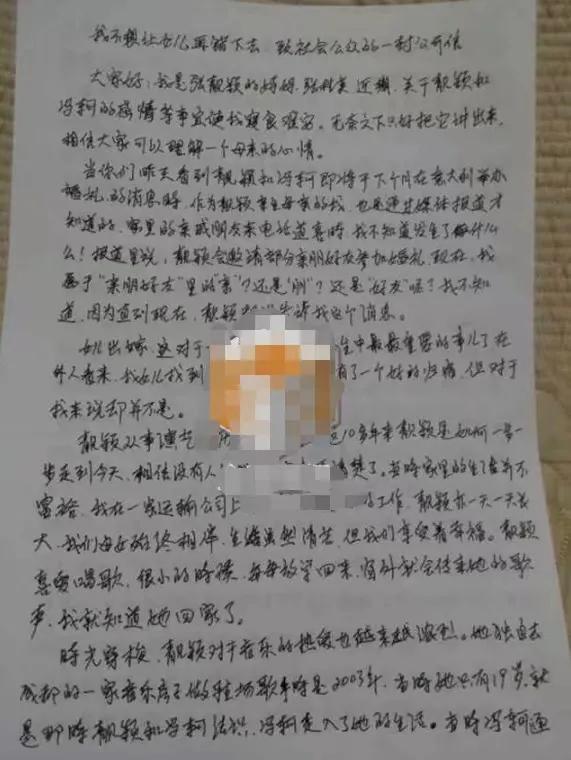 我不想让女儿再错下去 致社会公众的一封公开信
大家好,我是张靓颖的妈妈,张桂英 近期,关于靓颖和
冯轲的婚情等事宜使我寝食难安。无奈之下只好把它讲出来,
相信大家可以理解一个母亲的心情。
当你们昨天看到靓颖和冯轲即将于下个月在意大利举办
婚礼的消息时,作为靓颖亲生母亲的我,也是通过媒体报道才
知道的,家里的亲戚朋友来电话道喜时,我不知道发生了做什么
么!报道里说,靓颖会邀请部分亲朋好友参加婚礼,现在,我
属于“亲朋好友”里的“亲”?还是“朋”?还是“好友”呢?我不知
道,因为直到现在,靓颖都没告诉我这个消息。
女儿出嫁,这对于一 生中最最重要的事儿了在
外人看来,我女儿找到 有了一个好的归宿,但对于
我来说却并不是。
靓颖从事演艺 这10多年来靓颖是如何一步一
步走到今天,相信没有人 清楚了。当时家里的生活并不
富裕,我在一家运输公司上 的工作,靓颖亦一天一天长
大,我们母女始终相伴,生活虽然清苦,但我们享受着幸福。靓颖
喜爱唱歌,很小的时候,每每放学回来,窗外就会传来她的歌
声,我就知道她回家了。
时光穿梭,靓颖对于音乐的热爱也越来越浓烈。她独自去
成都的一家音乐房子做驻场歌手时是2003年,当时她只有19岁,就
是那时靓颖和冯轲结识,冯轲走入了她的生活。当时冯轲通